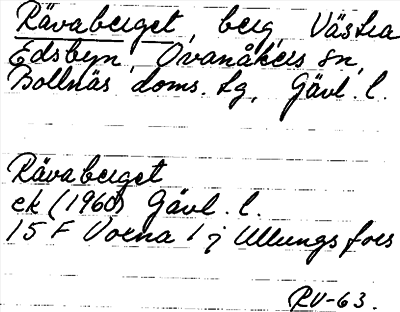 Rävaberget, berg, Västra
Edsbyn, Ovanåkers sn,
Bollnäs doms. tg, Gävl. l.
Rävaberget
ek (1960) Gävl. l.
15 F Voxna / j Ullungsfors
RV-63.